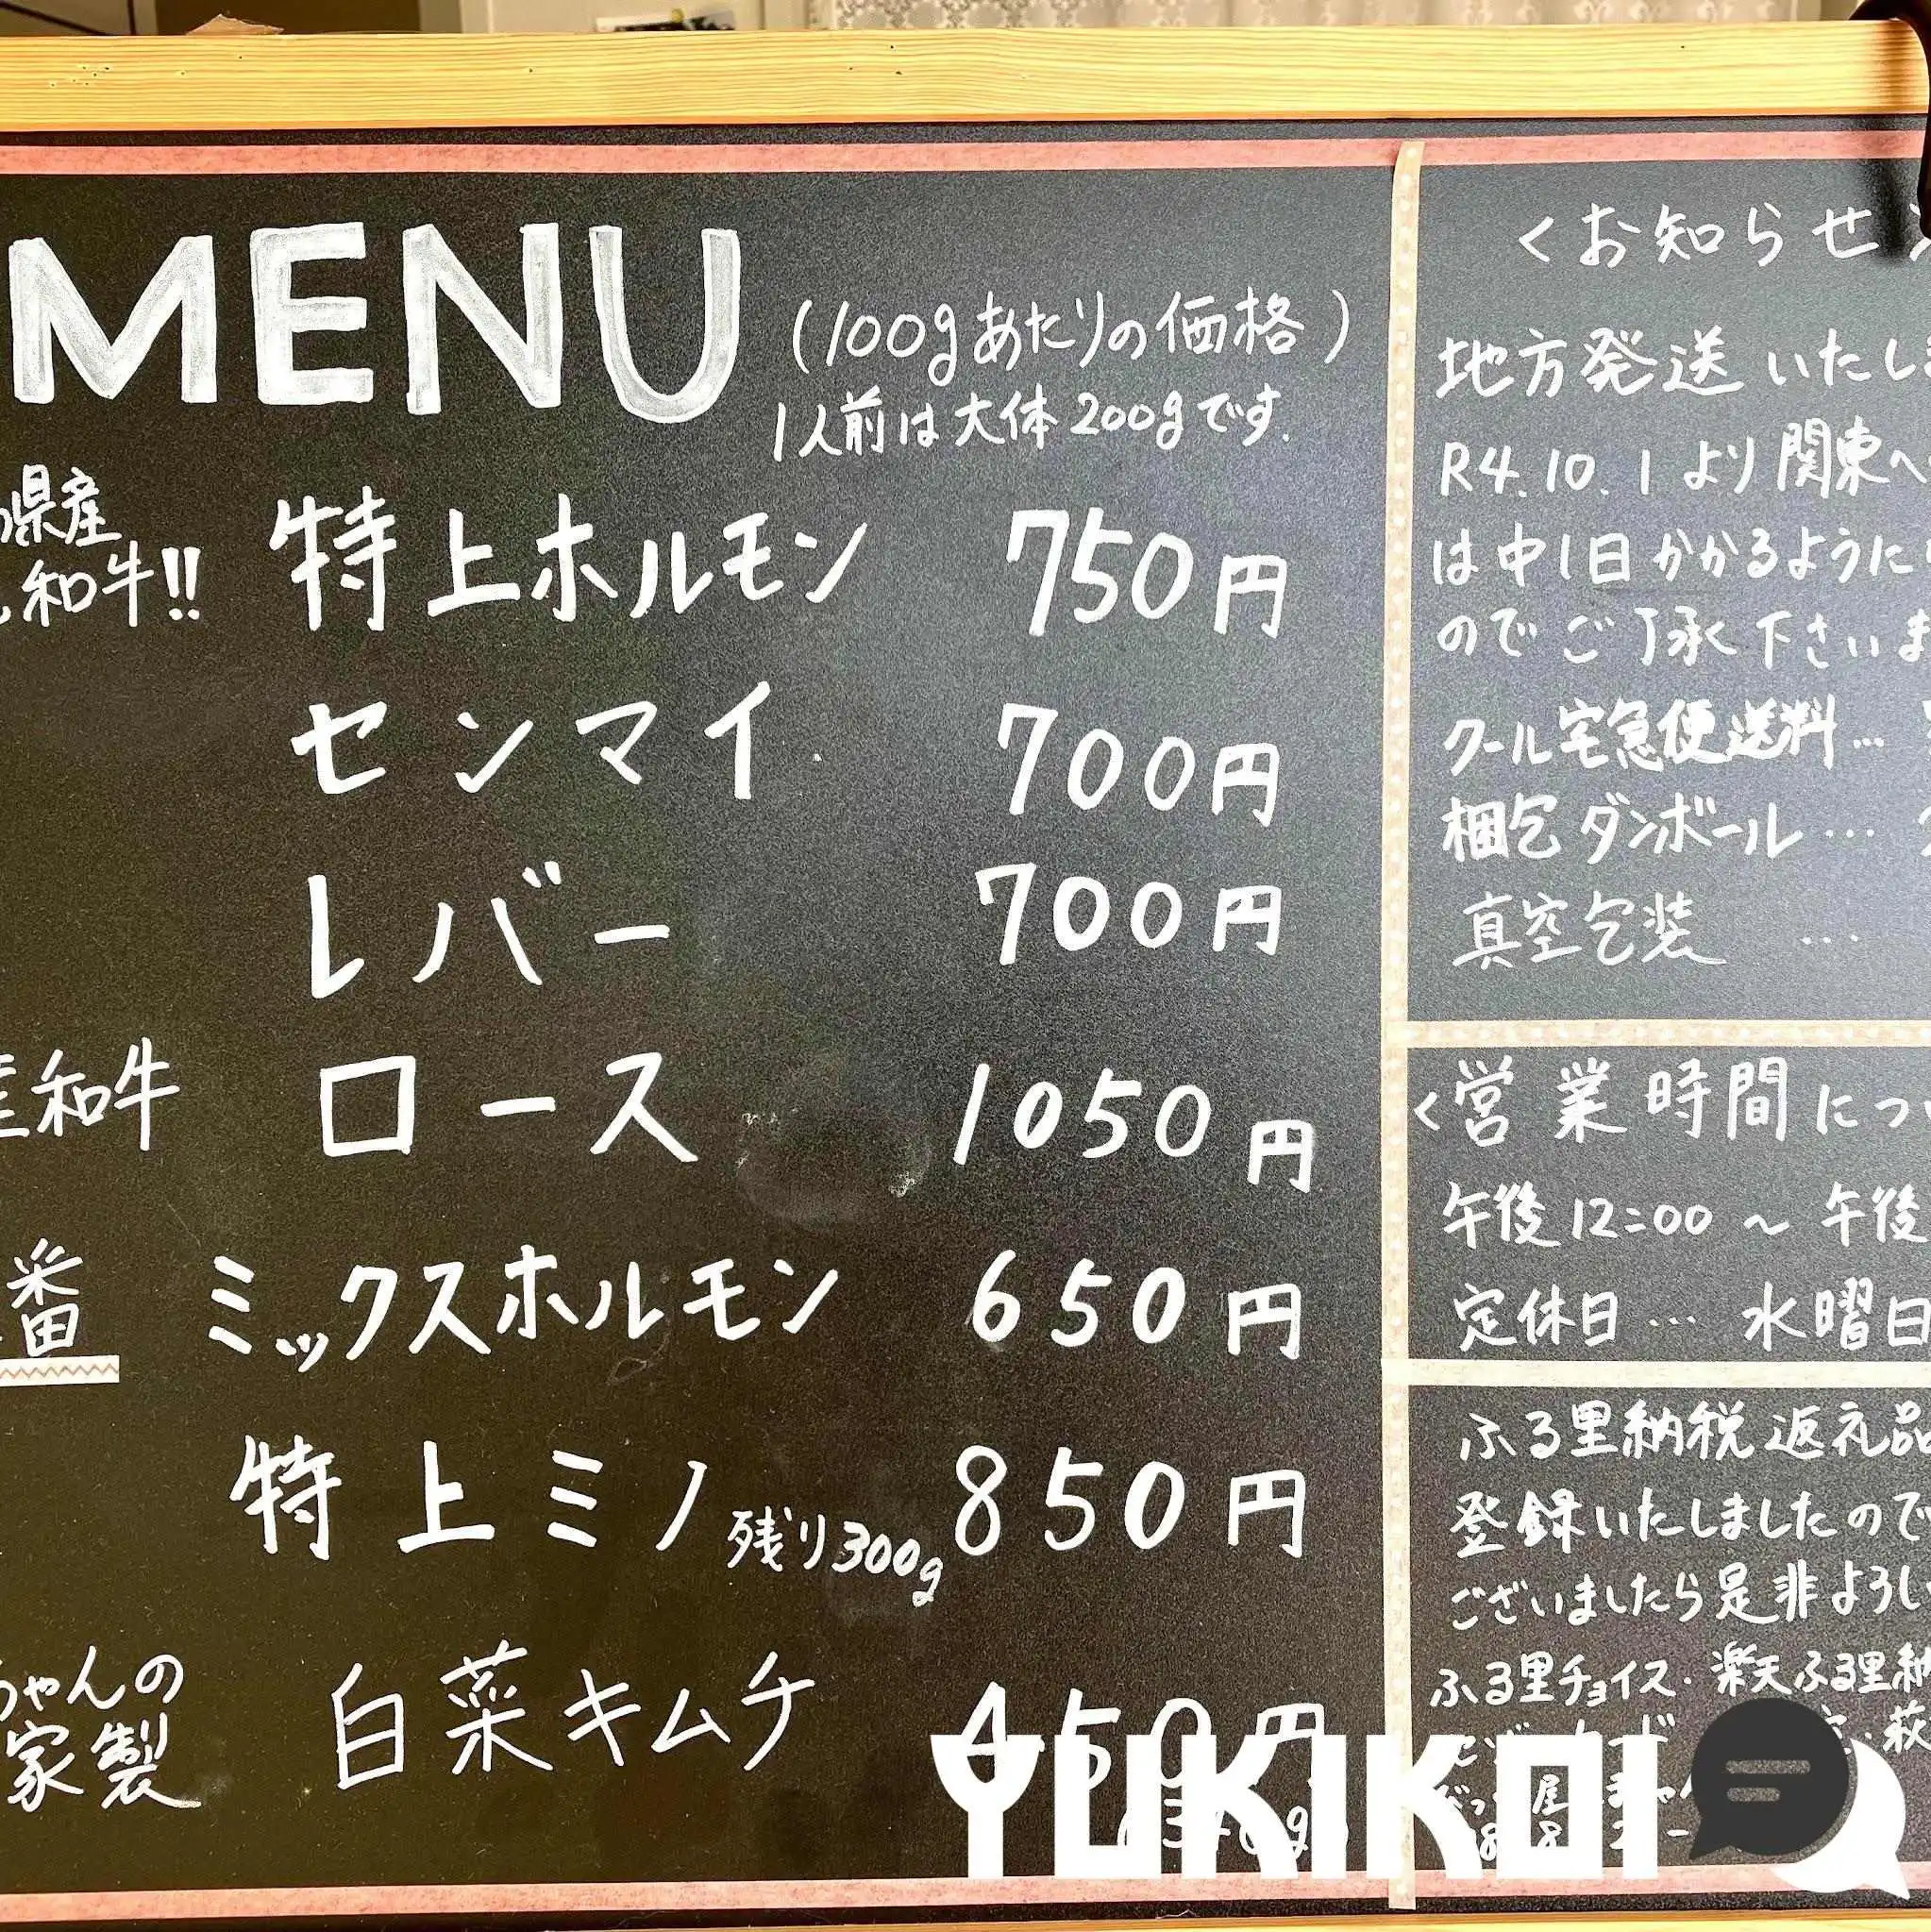 MENU
(100gあたりの価格)
1人前は大体200gです.
県産
和牛!!
特上ホルモン 750円
センマイ 700円
レバー 700円
産和牛
ロース 1050円
番
ミックスホルモン 650円
特上ミノ 残り300g 850円
ちゃんの
家製
白菜キムチ 450円
<お知らせ
地方発送いたし
R4.10.1より関東へ
は中1日かかるように
のでご了承下さいま
クール宅急便送料…
梱包ダンボール…
真空包装 …
<営業時間につ
午後12:00~午後
定休日…水曜日
ふる里納税返礼品
登録いたしましたので
ございましたら是非よろし
ふる里チョイス・楽天ふる里納
YUKIKOI